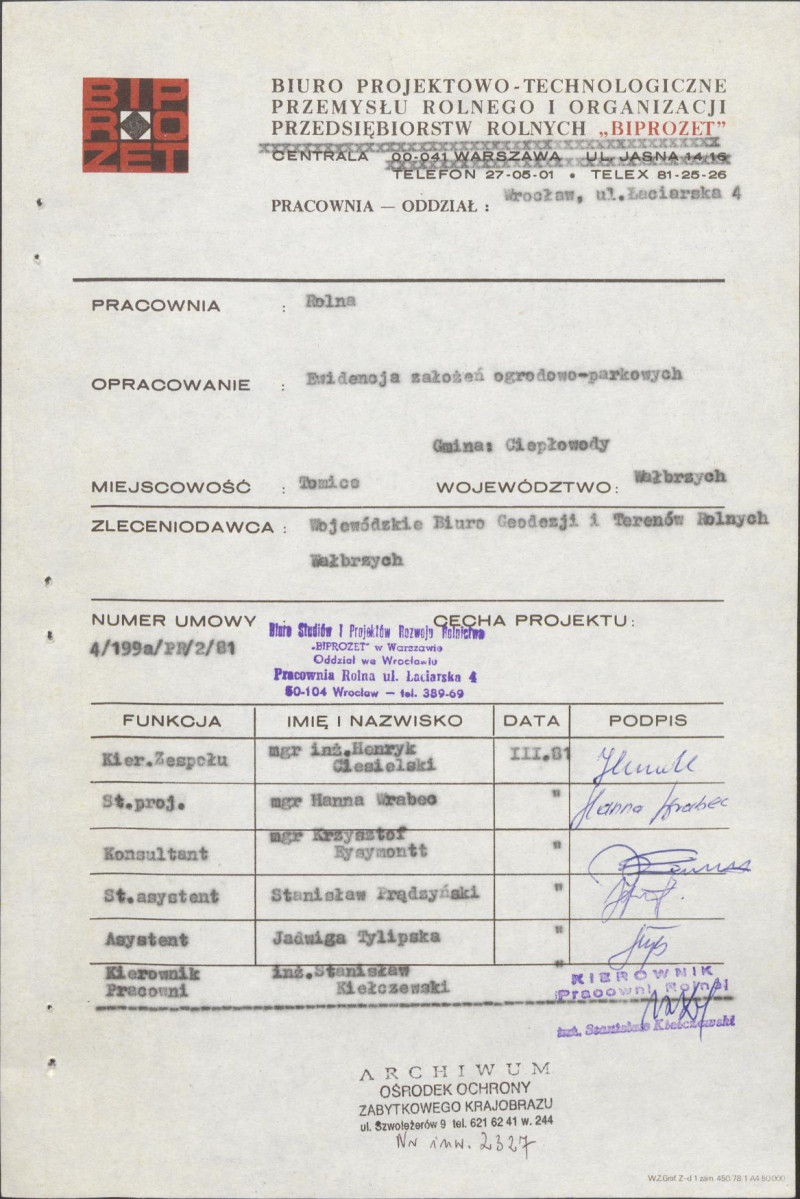 BIP
RO
ZET
BIURO PROJEKTOWO-TECHNOLOGICZNE
PRZEMYSŁU ROLNEGO I ORGANIZACJI
PRZEDSIĘBIORSTW ROLNYCH „BIPROZET”
CENTRALA 00-041 WARSZAWA UL. JASNA 14/16
TELEFON 27-05-01 • TELEX 81-25-26
PRACOWNIA — ODDZIAŁ : Wrocław, ul.Łaciarska 4
PRACOWNIA : Rolna
OPRACOWANIE : Ewidencja założeń ogrodowo-parkowych
Gmina: Ciepłowody
MIEJSCOWOŚĆ : Tomice WOJEWÓDZTWO: Wałbrzych
ZLECENIODAWCA : Wojewódzkie Biuro Geodezji i Terenów Rolnych
Wałbrzych
NUMER UMOWY : CECHA PROJEKTU:
4/199a/PR/2/81
Biuro Studiów i Projektów Rozwoju Rolnictwa
„BIPROZET” w Warszawie
Oddział we Wrocławiu
Pracownia Rolna ul. Łaciarska 4
50-104 Wrocław — tel. 389-69
FUNKCJA IMIĘ I NAZWISKO DATA PODPIS
Kier.Zespołu mgr inż.Henryk Ciesielski III.81
St.proj. mgr Hanna Wrabec " Hanna Wrabec
Konsultant mgr Krzysztof Eysymontt "
St.asystent Stanisław Prądzyński "
Asystent Jadwiga Tylipska "
Kierownik Pracowni inż.Stanisław Kiełczewski "
KIEROWNIK
Pracowni Rolnej
inż. Stanisław Kiełczewski
ARCHIWUM
OŚRODEK OCHRONY
ZABYTKOWEGO KRAJOBRAZU
ul. Szwoleżerów 9 tel. 621 62 41 w. 244
Nr inw. 2327
WZGraf. Z-d 1 zam. 450/78 1 A4 50000